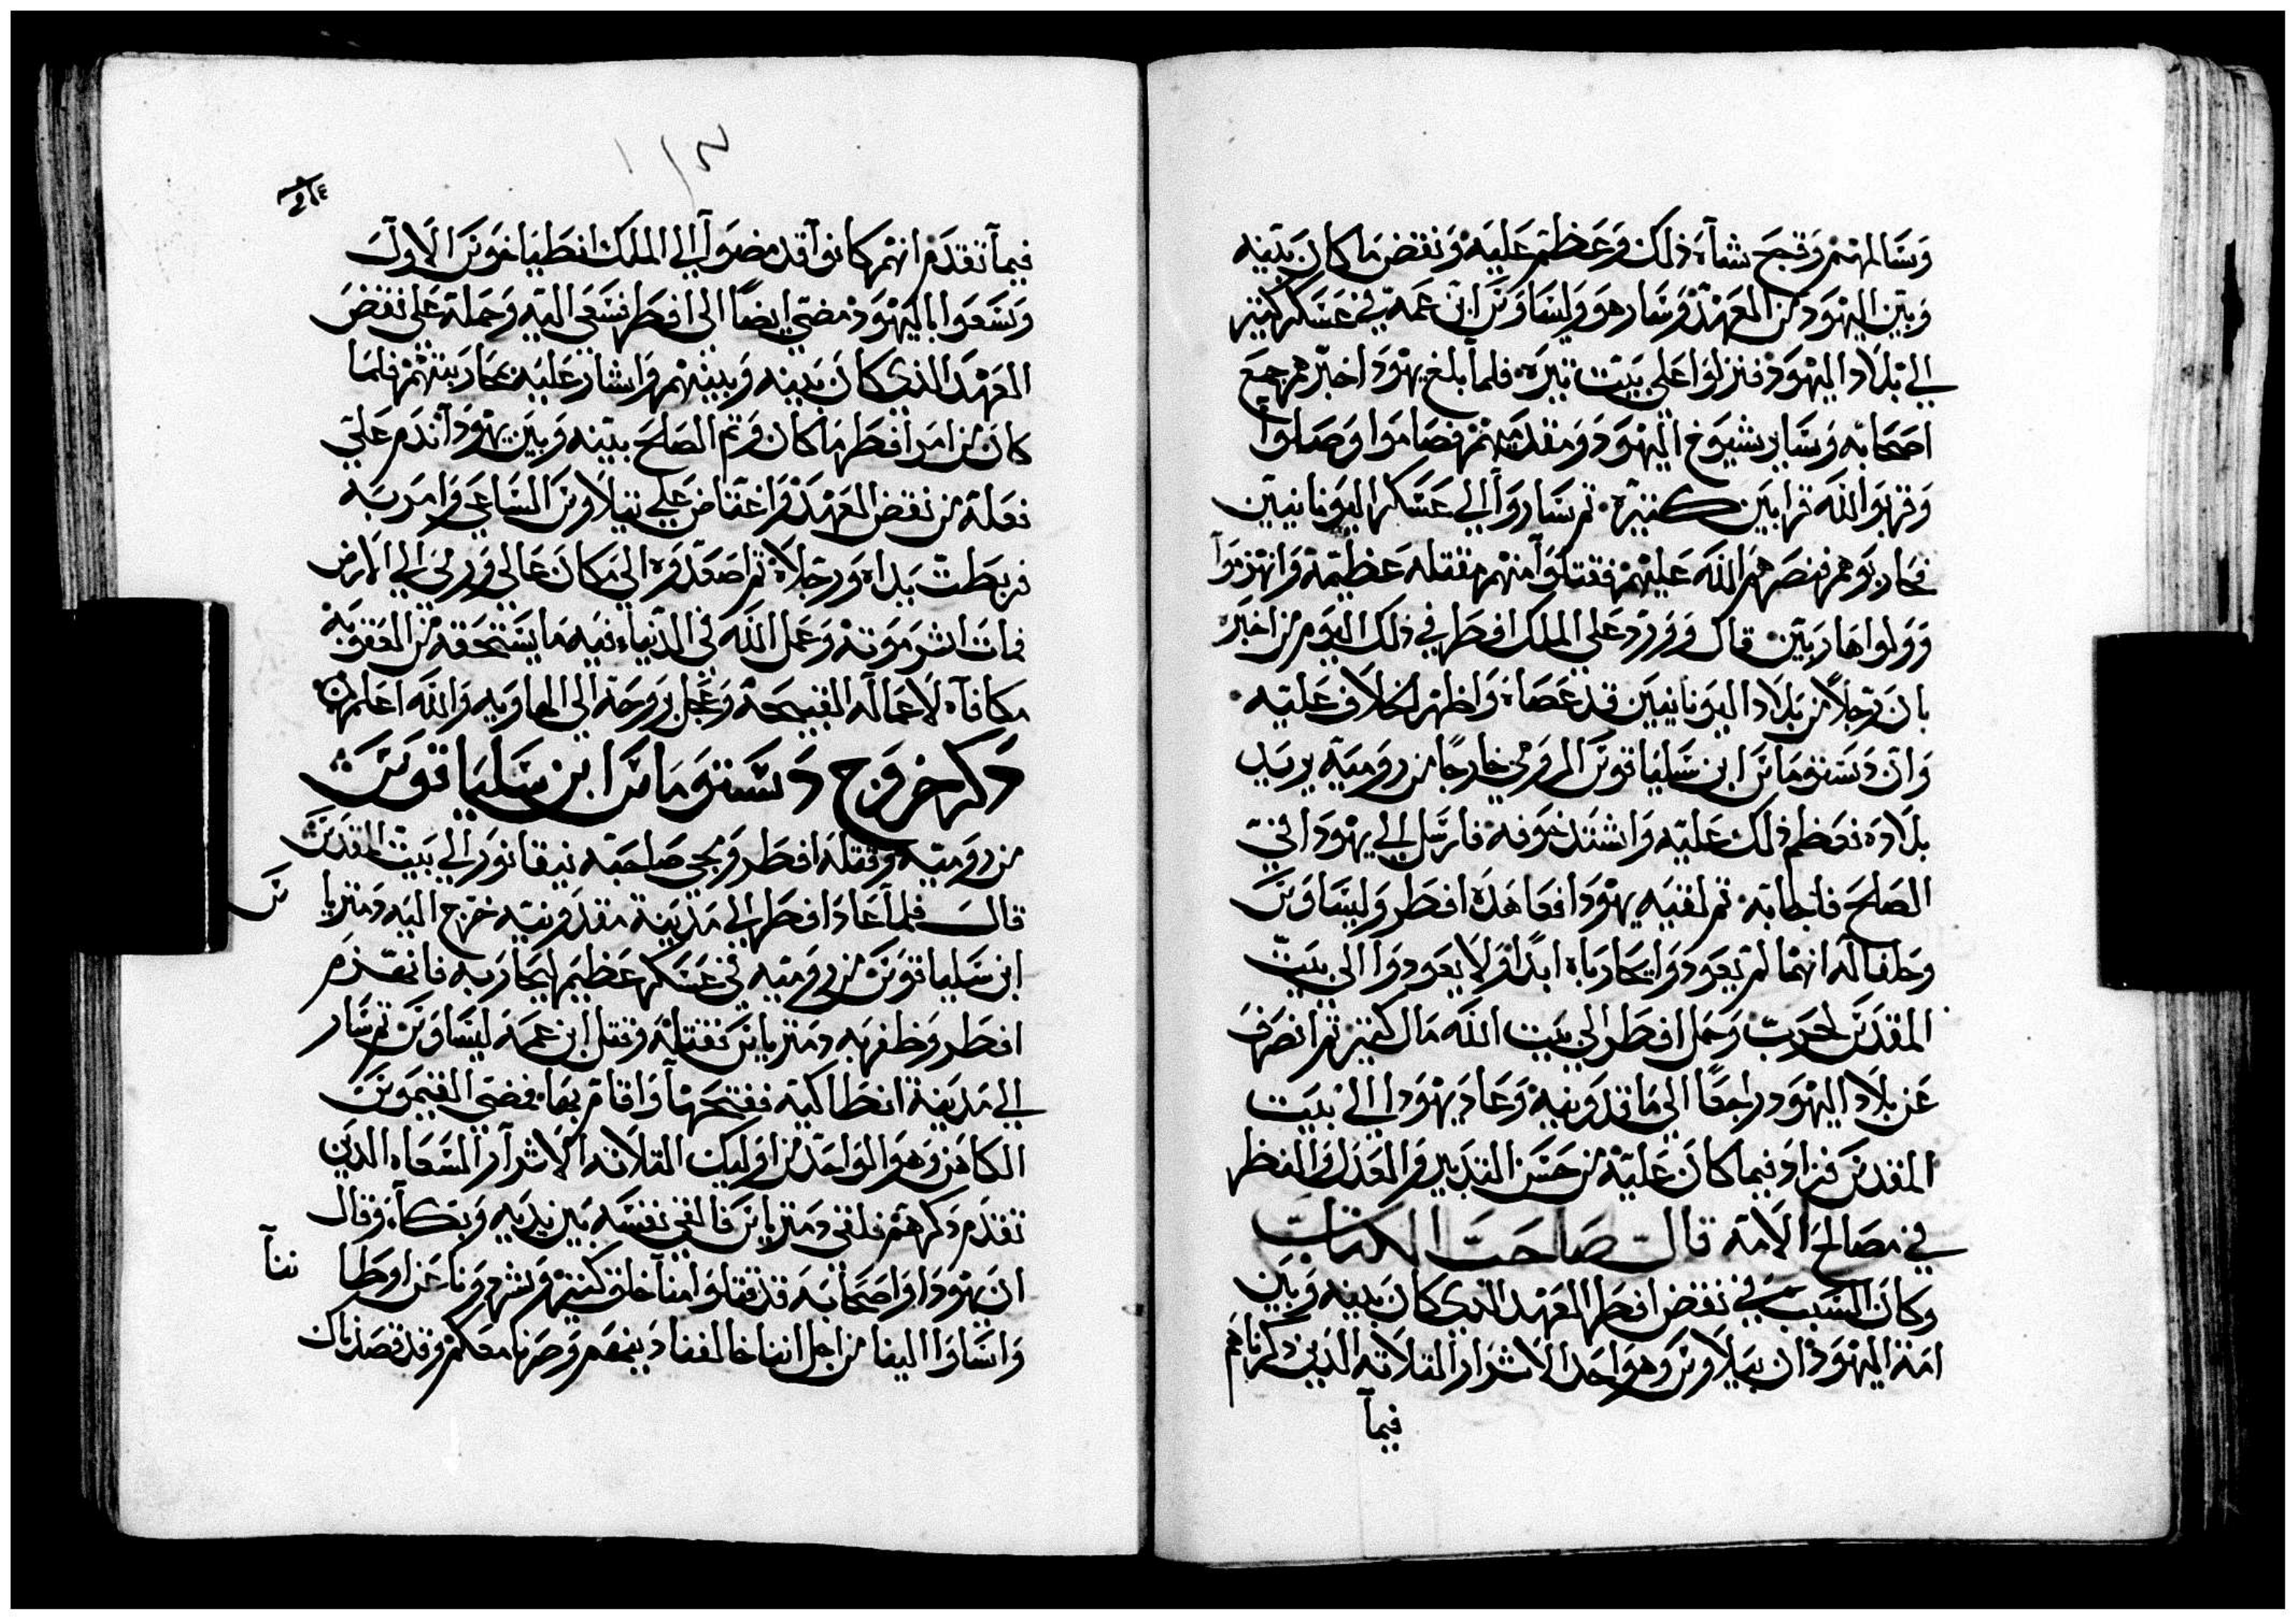 وسالمهم وقجح شاه ذلك وعظم عليه ونقض ما كان بينه
وبين اليهود من العهد وسار هو وليساوس ابن عمه في عسكر كتير
الي بلاد اليهود فنزلوا علي بيت تيره فلما بلغ يهودا خبرهم جمع
اصحابه وساير شيوخ اليهود ومقدميهم فصاموا وصلوا
وقربوا الله قرابين كتيرة تم ساروا الي عسكر اليونانيين
فحاربوهم فنصرهم الله عليهم فقتلوا منهم مقتله عظيمة وانهزموا
وولوا هاربين قال وورد علي الملك افطر في ذلك اليوم من اخبره
بان رجلا من بلاد اليونانيين قد عصاه واظهر الخلاف عليه
وان دستوماس ابن سلياقوس الرومي خارجا من روميه يريد
بلاده فعظم ذلك عليه واشتد خوفه فارسل الي يهودا في
الصلح فاجابه تم لقيه يهودا فعاهده افطر وليساوس
وحلفا له انهما لم يعودوا يحارباه ابدا ولا يعودوا الي بيت
المقدس لحرب وحمل افطر الي بيت الله مال كتير تم انصرف
عن بلاد اليهود راجعا الي ماقدونيه وعاد يهودا الي بيت
المقدس فزاد فيما كان عليه من حسن التدبير والعدل والنظر
في مصالح الامة قال صاحب الكتاب
وكان السبب في نقض افطر العهد الدي كان بينه وبين
امة اليهود ان بيلاوس وهو احد الاشرار التلاته الدين دكرناهم
فيما
٢١٤
فيما تقدم انهم كانوا قد مضوا الي الملك انطياخوس الاول
وسعوا باليهود مضي ايضا الي افطر فسعي اليه وحمله علي نقض
العهد الذي كان بينه وبينهم واشار عليه بمحاربتهم فلما
كان من امر افطر ما كان وتم الصلح بينه وبين يهودا ندم علي
نعله من نقض العهد واغتاض علي بيلاوس الساعي وامر به
فربطت يداه ورجلاه تم اصعدوه الي مكان عالي ورمي الي الارض
فمات اشر موته وعمل الله في الدنيا فيه ما يستحقه من العقوبة
مكافاه لاعماله القبيحة وعجل بروحه الي الهاويه والله اعلم
دكر خروج دستوماس ابن سلياقوس
من روميه وقتله افطر ومجي صاحبه نيقانور الي بيت المقدس
قال فلما عاد افطر الي مدينة مقدونيه خرج اليه دمتريا
س
ابن سلياقوس من روميه في عسكر عظيم ليحاربه فانهزم
افطر وظفر به دمترياس فقتله وقتل ابن عمه ليساوس تم سار
الي مدينة انطاكيه ففتحها واقام بها فمضي القيموس
الكاهن وهو الواحد من اوليك التلاته الاشرار السعاه الدين
تقدم دكرهم فلقي دمترياس فالقي نفسه بين يديه وبكا وقال
ان يهودا واصحابه قد قتلوا منا خلق كتير وشردونا عن اوطا
ننا
واساوا الينا من اجل اننا خالفنا دينهم وصرنا معكم وقد قصدناك